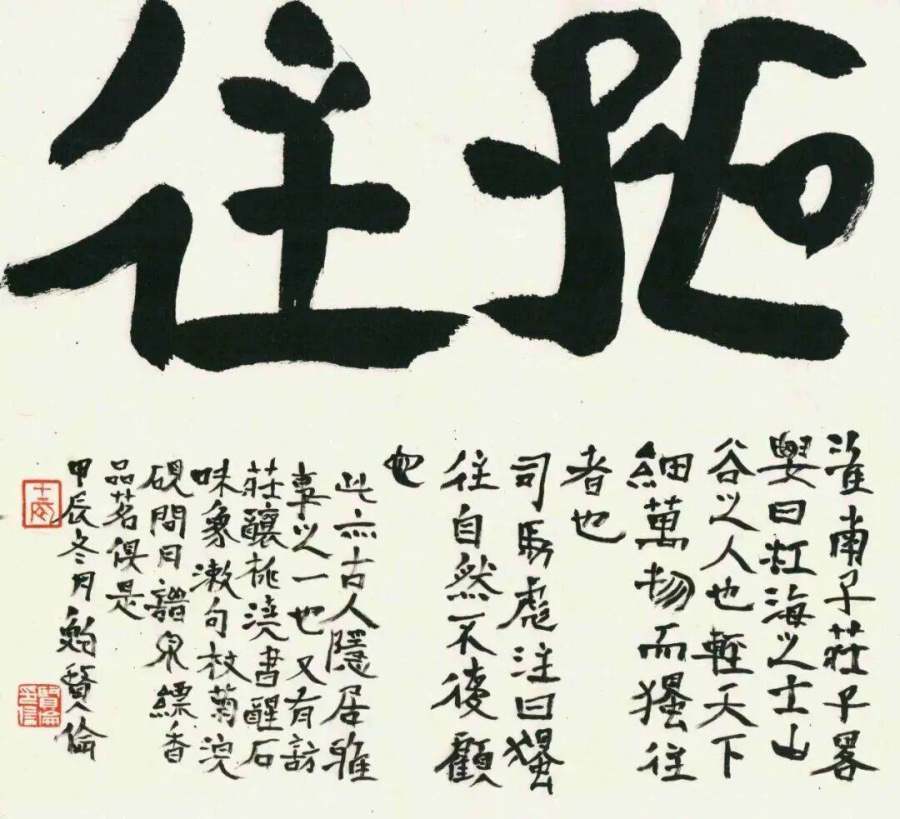 獨往
淮南子莊子畧
要曰江海之士山
谷之人也輕天下
細萬物而獨往
者也
司馬彪注曰獨
往自然不復顧
也
此亦古人隱居雅
事之一也又有訪
莊釀桃澆書醒石
味象漱句杖菊浣
硯問月譜泉縹香
品茗俱是
甲辰冬月鮑賢倫